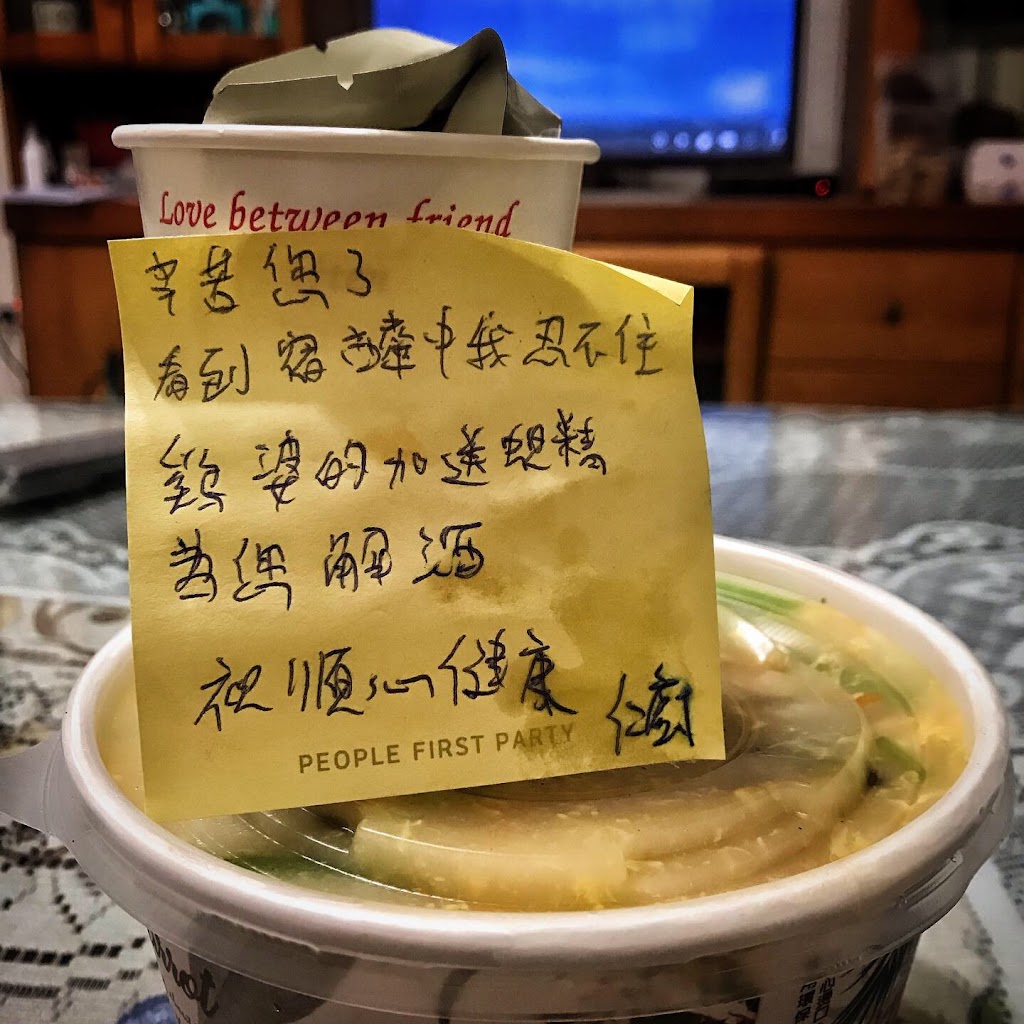 Love between friend
辛苦您了
看到宿醉中我忍不住
雞婆的加送蜆精
為您解酒
祝順心健康
PEOPLE FIRST PARTY